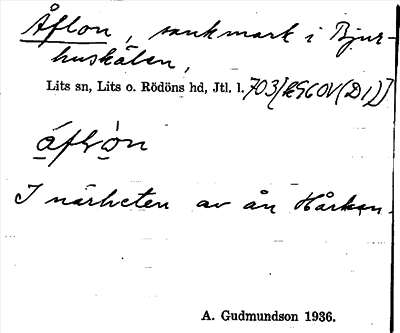 Åflon, sankmark i Bjur-
huskälen,
Lits sn, Lits o. Rödöns hd, Jtl. l.
áflòn
I närheten av ån Hårkan.
A. Gudmundson 1936.